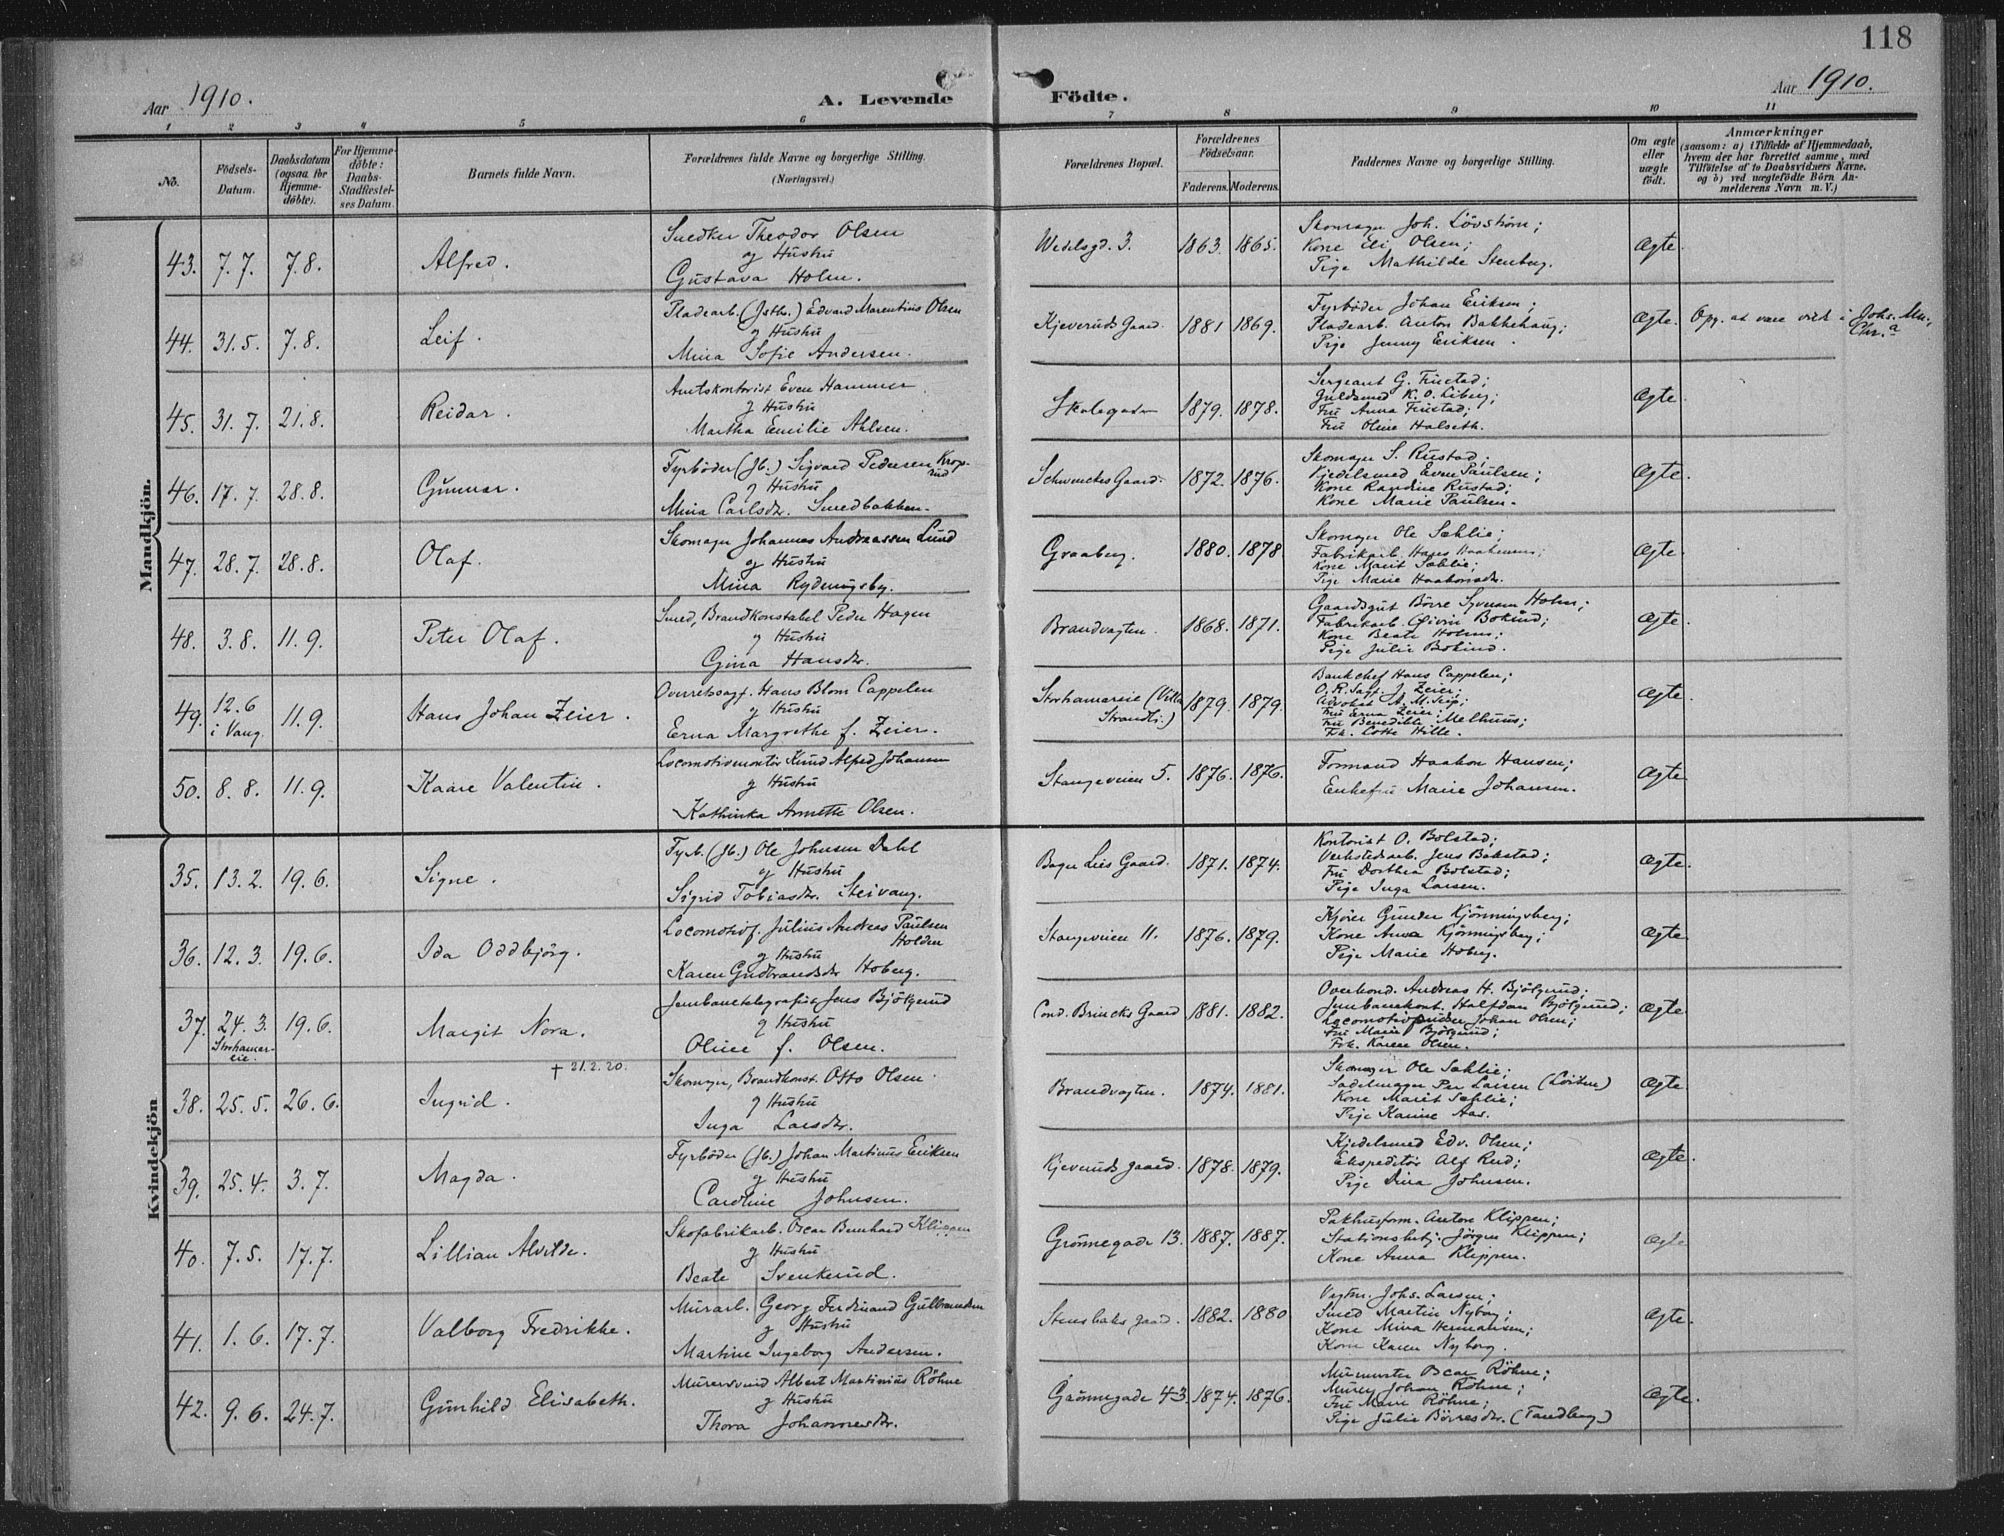 118
Aar 1910.
A. Levende Födte.
Aar 1910.
1 2 3 4 5 6 7 8 9 10 11
No.
Födsels-
Datum.
Daabsdatum
(ogsaa for
Hjemme-
döbte).
For Hjemme-
döbte:
Daabs-
Stadfæstel-
ses Datum.
Barnets fulde Navn.
Forældrenes fulde Navne og borgerlige Stilling.
(Næringsvei.)
Forældrenes Bopæl.
Forældrenes
Födselsaar.
Faderens. Moderens.
Faddernes Navne og borgerlige Stilling.
Om ægte
eller
uægte
født.
Anmærkninger
(saasom: a) i Tilfælde af Hjemmedaab,
hvem der har forrettet samme, med
Tilföielse af to Daabsvidners Navne.
og b) ved uægtefödte Börn An-
melderens Navn m. V.)
Mandkjön.
43. 7.7. 7.8. Alfred.
Snedker Theodor Olsen
og Hustru
Gustava Holm.
Wedelsgd. 3. 1863. 1865.
Skomager Joh. Lövström;
Kone Eli Olsen;
Pige Mathilde Stenberg.
Ægte.
44. 31.5. 7.8. Leif.
Pladearb. (Jstb.) Edvard Marentius Olsen
og Hustru
Mina Sofie Andersen.
Kjeveruds Gaard. 1881 1869.
Fyrböder Johan Eriksen;
Pladearb. Anton Bakkehaug;
Pige Jenny Eriksen.
Ægte. Opg. at være viet i Johs. Mn.,
Chr.a
45. 31.7. 21.8. Reidar.
Amtskontorist Even Hammer
og Hustru
Martha Emilie Ahlsen.
Skolegaden 1879. 1878.
Sergeant G. Frustad;
Guldsmed K. O. Liberg;
Fru Anna Frustad;
Fru Oline Halseth.
Ægte.
46. 17.7. 28.8. Gunnar.
Fyrböder (Jb.) Sigvard Pedersen Krop-
rud
og Hustru
Mina Carlsdtr. Smedbakken.
Schwenckes Gaard. 1872. 1876.
Skomager S. Rustad;
Kjedelsmed Even Paulsen;
Kone Randine Rustad;
Kone Marie Paulsen.
Ægte.
47. 28.7. 28.8. Olaf.
Skomager Johannes Andreassen Lund
og Hustru
Mina Rydningsby.
Graaberg. 1880. 1878
Skomager Ole Sæhlie;
Fabrikarb. Hans Haakensen;
Kone Marit Sæhlie;
Pige Marie Haakonsdr.
Ægte.
48. 3.8. 11.9. Peter Olaf.
Smed, Brandkonstabel Peder Hagen
og Hustru
Gina Hansdtr.
Brandvagten. 1868. 1871.
Gaardsgut Börre Syversen Holm;
Fabrikarb. Eivin Bokind;
Kone Beate Holm;
Pige Julie Bokind.
Ægte.
49. 12.6 i Vang. 11.9. Hans Johan Zeier.
Overretssagf. Hans Blom Cappelen
og Hustru
Erna Margrethe f. Zeier.
Storhamarsie (Villa
Strandli.) 1879. 1879.
Bankchef Hans Cappelen;
O.R.Sagf. J. Zeier;
Advokat A. M. Seip;
Fru Erna Zeier;
Fru Benedikte Melhuus;
Frk. Lotte Hille.
Ægte.
50. 8.8. 11.9. Kaare Valentin.
Locomotivmontör Knud Alfred Johansen
og Hustru
Kathinka Annette Olsen.
Stangeveien 5. 1876. 1876.
Formand Haakon Hansen;
Enkefru Marie Johansen.
Ægte
Kvindekjön
35. 13.2. 19.6. Signe.
Fyrb. (Jb.) Ole Johnsen Dahl
og Hustru
Sigrid Tobiasdtr. Steivang.
Bager Lies Gaard. 1871. 1874.
Kontorist O. Bolstad;
Verkstedsarb. Jens Bakstad;
Fru Dorthea Bolstad;
Pige Inga Larsen.
Ægte.
36. 12.3. 19.6. Ida Oddbjörg.
Locomotivf. Julius Andreas Paulsen
Holden
og Hustru
Karen Gudbrandsdtr Hoberg.
Stangeveien 11. 1876. 1879.
Kjörer Gunder Kjönningsberg;
Kone Anna Kjönningsberg;
Pige Marie Hoberg.
Ægte
37. 24.3. Storhamar-
sie. 19.6. Margit Nora.
Jernbanetelegrafist Jens Bjölgerud
og Hustru
Oline f. Olsen.
Cond. Brincks Gaard 1881. 1882.
Overkond. Andreas H. Bjölgerud;
Jernbanekont. Halfdan Bjölgerud;
Locomotivpudser Johan Olsen;
Fru Marie Bjölgerud;
Frk. Karen Olsen.
Ægte
38. 25.5. 26.6. Ingrid.
† 21.2.20.
Skomager, Brandkonst. Otto Olsen
og Hustru
Inga Larsdtr.
Brandvagten. 1874. 1881.
Skomager Ole Sæhlie;
Sadelmager Per Larsen (Löiten)
Kone Marit Sæhlie;
Pige Karine Aas.
Ægte
39. 25.4. 3.7. Magda.
Fyrböder (Jb.) Johan Martinus Eriksen
og Hustru
Caroline Johnsen.
Kjeveruds gaard. 1878. 1879.
Kjedelsmed Edv. Olsen;
Ekspeditör Alf Rud;
Pige Dina Johnsen.
Ægte.
40. 7.5. 17.7. Lillian Alvilde.
Skofabrikarb. Oscar Bernhard Klippen
og Hustru
Beate Svenkerud.
Grönnegade 13. 1887. 1887.
Pakhusform. Anton Klippen;
Stationsbetj. Jörgen Klippen;
Kone Anna Klippen.
Ægte
41. 1.6. 17.7. Valborg Fredrikke.
Murarb. Georg Ferdinand Gulbrandsen
og Hustru
Martine Ingeborg Andersen.
Stensbaks gaard. 1882. 1880
Vagtm. Johs. Larsen;
Smed Martin Nyborg;
Kone Mina Hermansen;
Kone Karen Nyborg.
Ægte.
42. 9.6. 24.7. Gunhild Elisabeth.
Murersvend Albert Martinius Röhne
og Hustru
Thora Johannesdtr.
Grönnegade 43. 1874. 1876.
Murmester Oscar Röhne;
Murer Johan Röhne;
Fru Marie Röhne;
Pige Julie Börresdtr. (Tandberg)
Ægte.